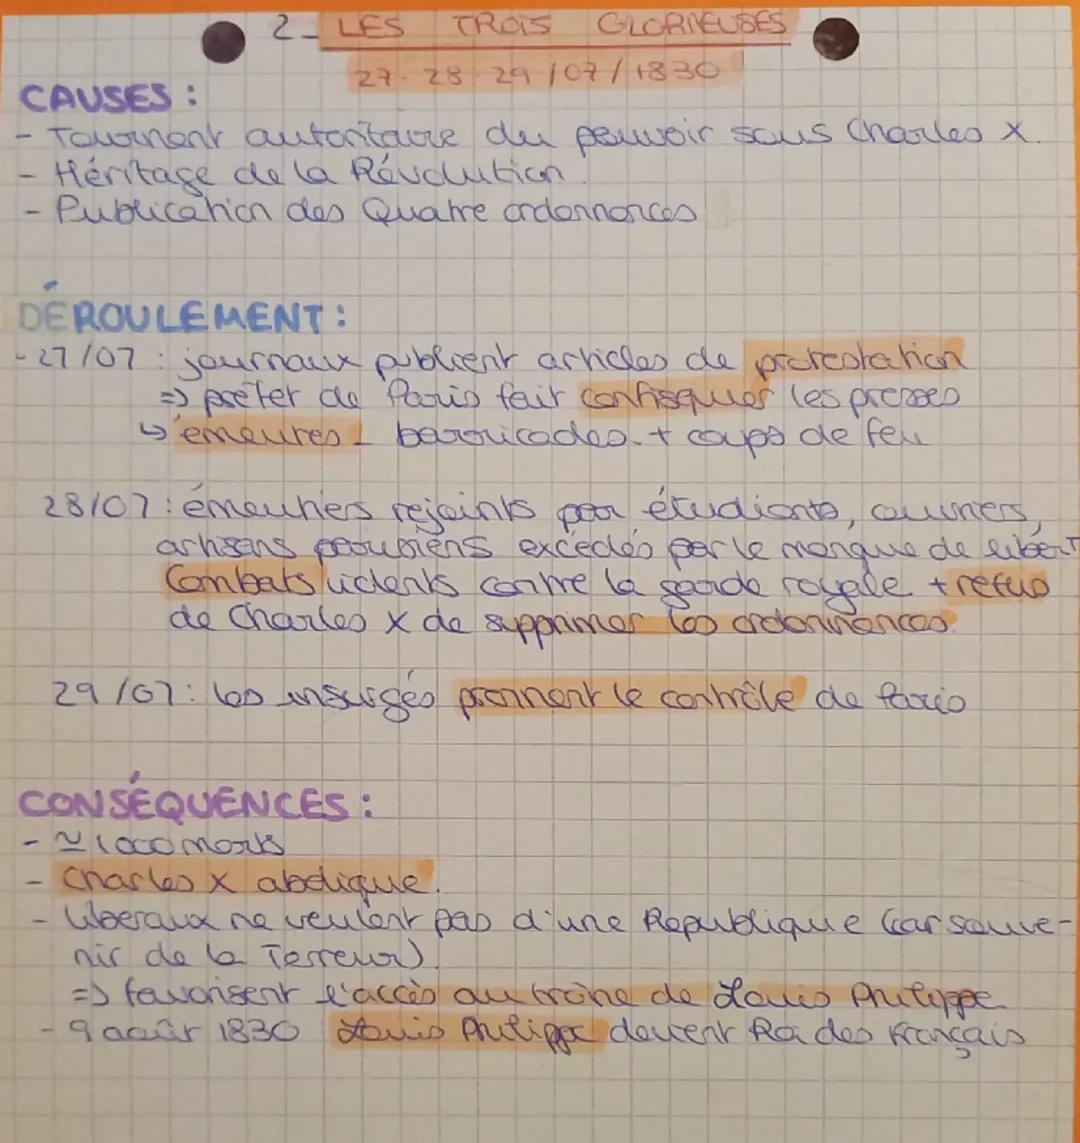 2_ LES TROIS GLORIEUSES
27. 28 29 /07/1830
CAUSES :
- Tournant autoritaire du pouvoir sous Charles X.
- Héritage de la Révolution.
- Publication des Quatre ordonnances
DÉROULEMENT :
- 27/07 : journaux publient articles de protestation
=> préfet de Paris fait confisquer les presses
↳ émeutes _ barricades. + coups de feu
28/07 : émeutiers rejoints par étudiants, ouvriers,
artisans parisiens excédés par le manque de libert
Combats violents contre la garde royale + refus
de Charles X de supprimer les ordonnances.
29/07 : les insurgés prennent le contrôle de Paris
CONSÉQUENCES :
- ≃ 1000 morts
- Charles X abdique.
- libéraux ne veulent pas d'une République (car souve-
nir de la Terreur).
=> favorisent l'accès au trône de Louis Philippe
- 9 août 1830 Louis Philippe devient Roi des Français